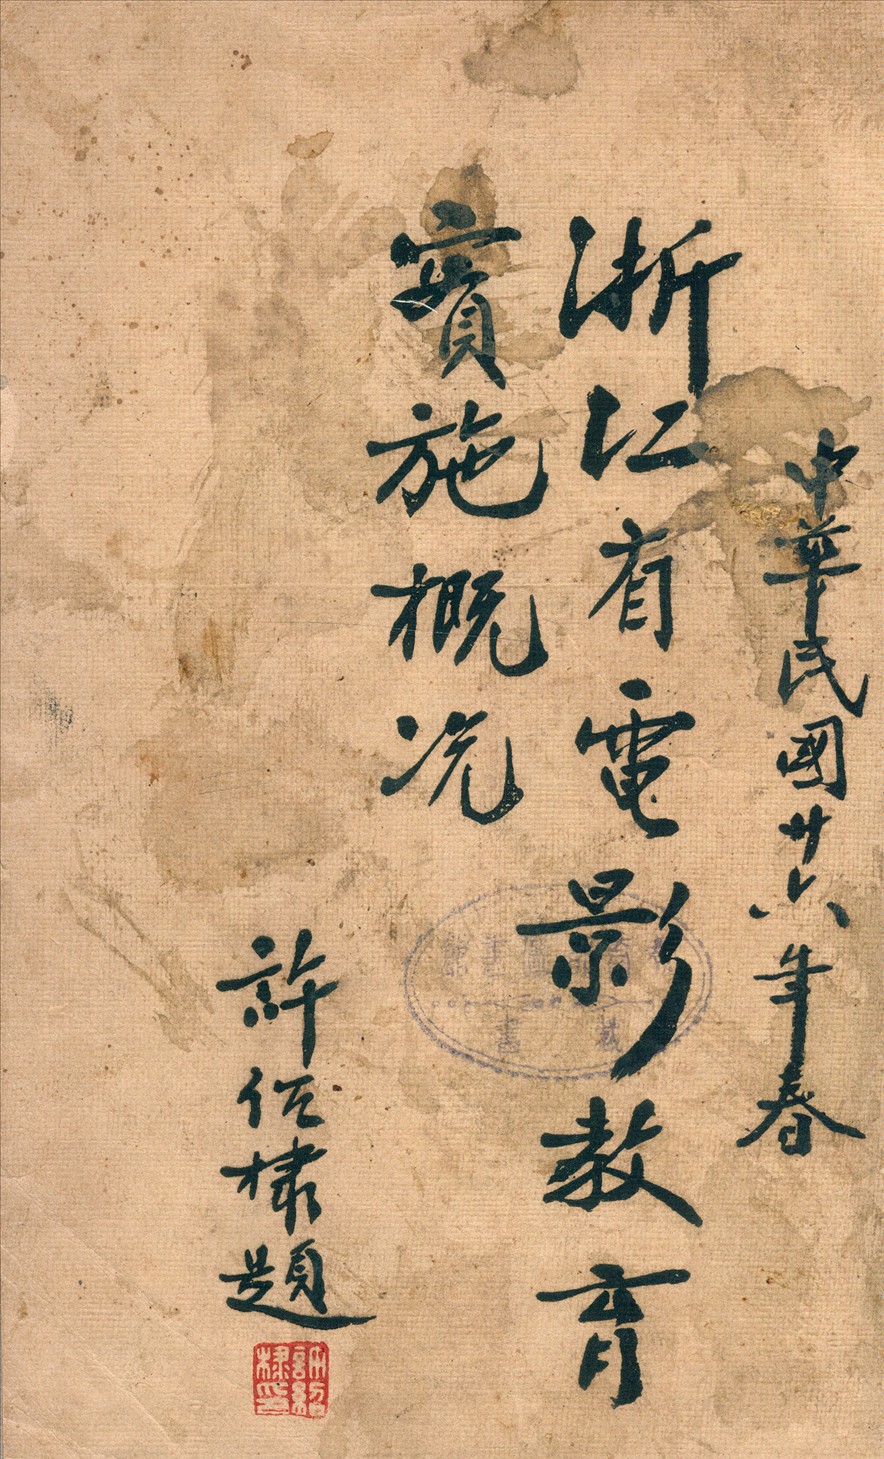 中華民國廿六年春
浙江省電影教育
實施概況
許紹棣題
許紹棣印
藏書